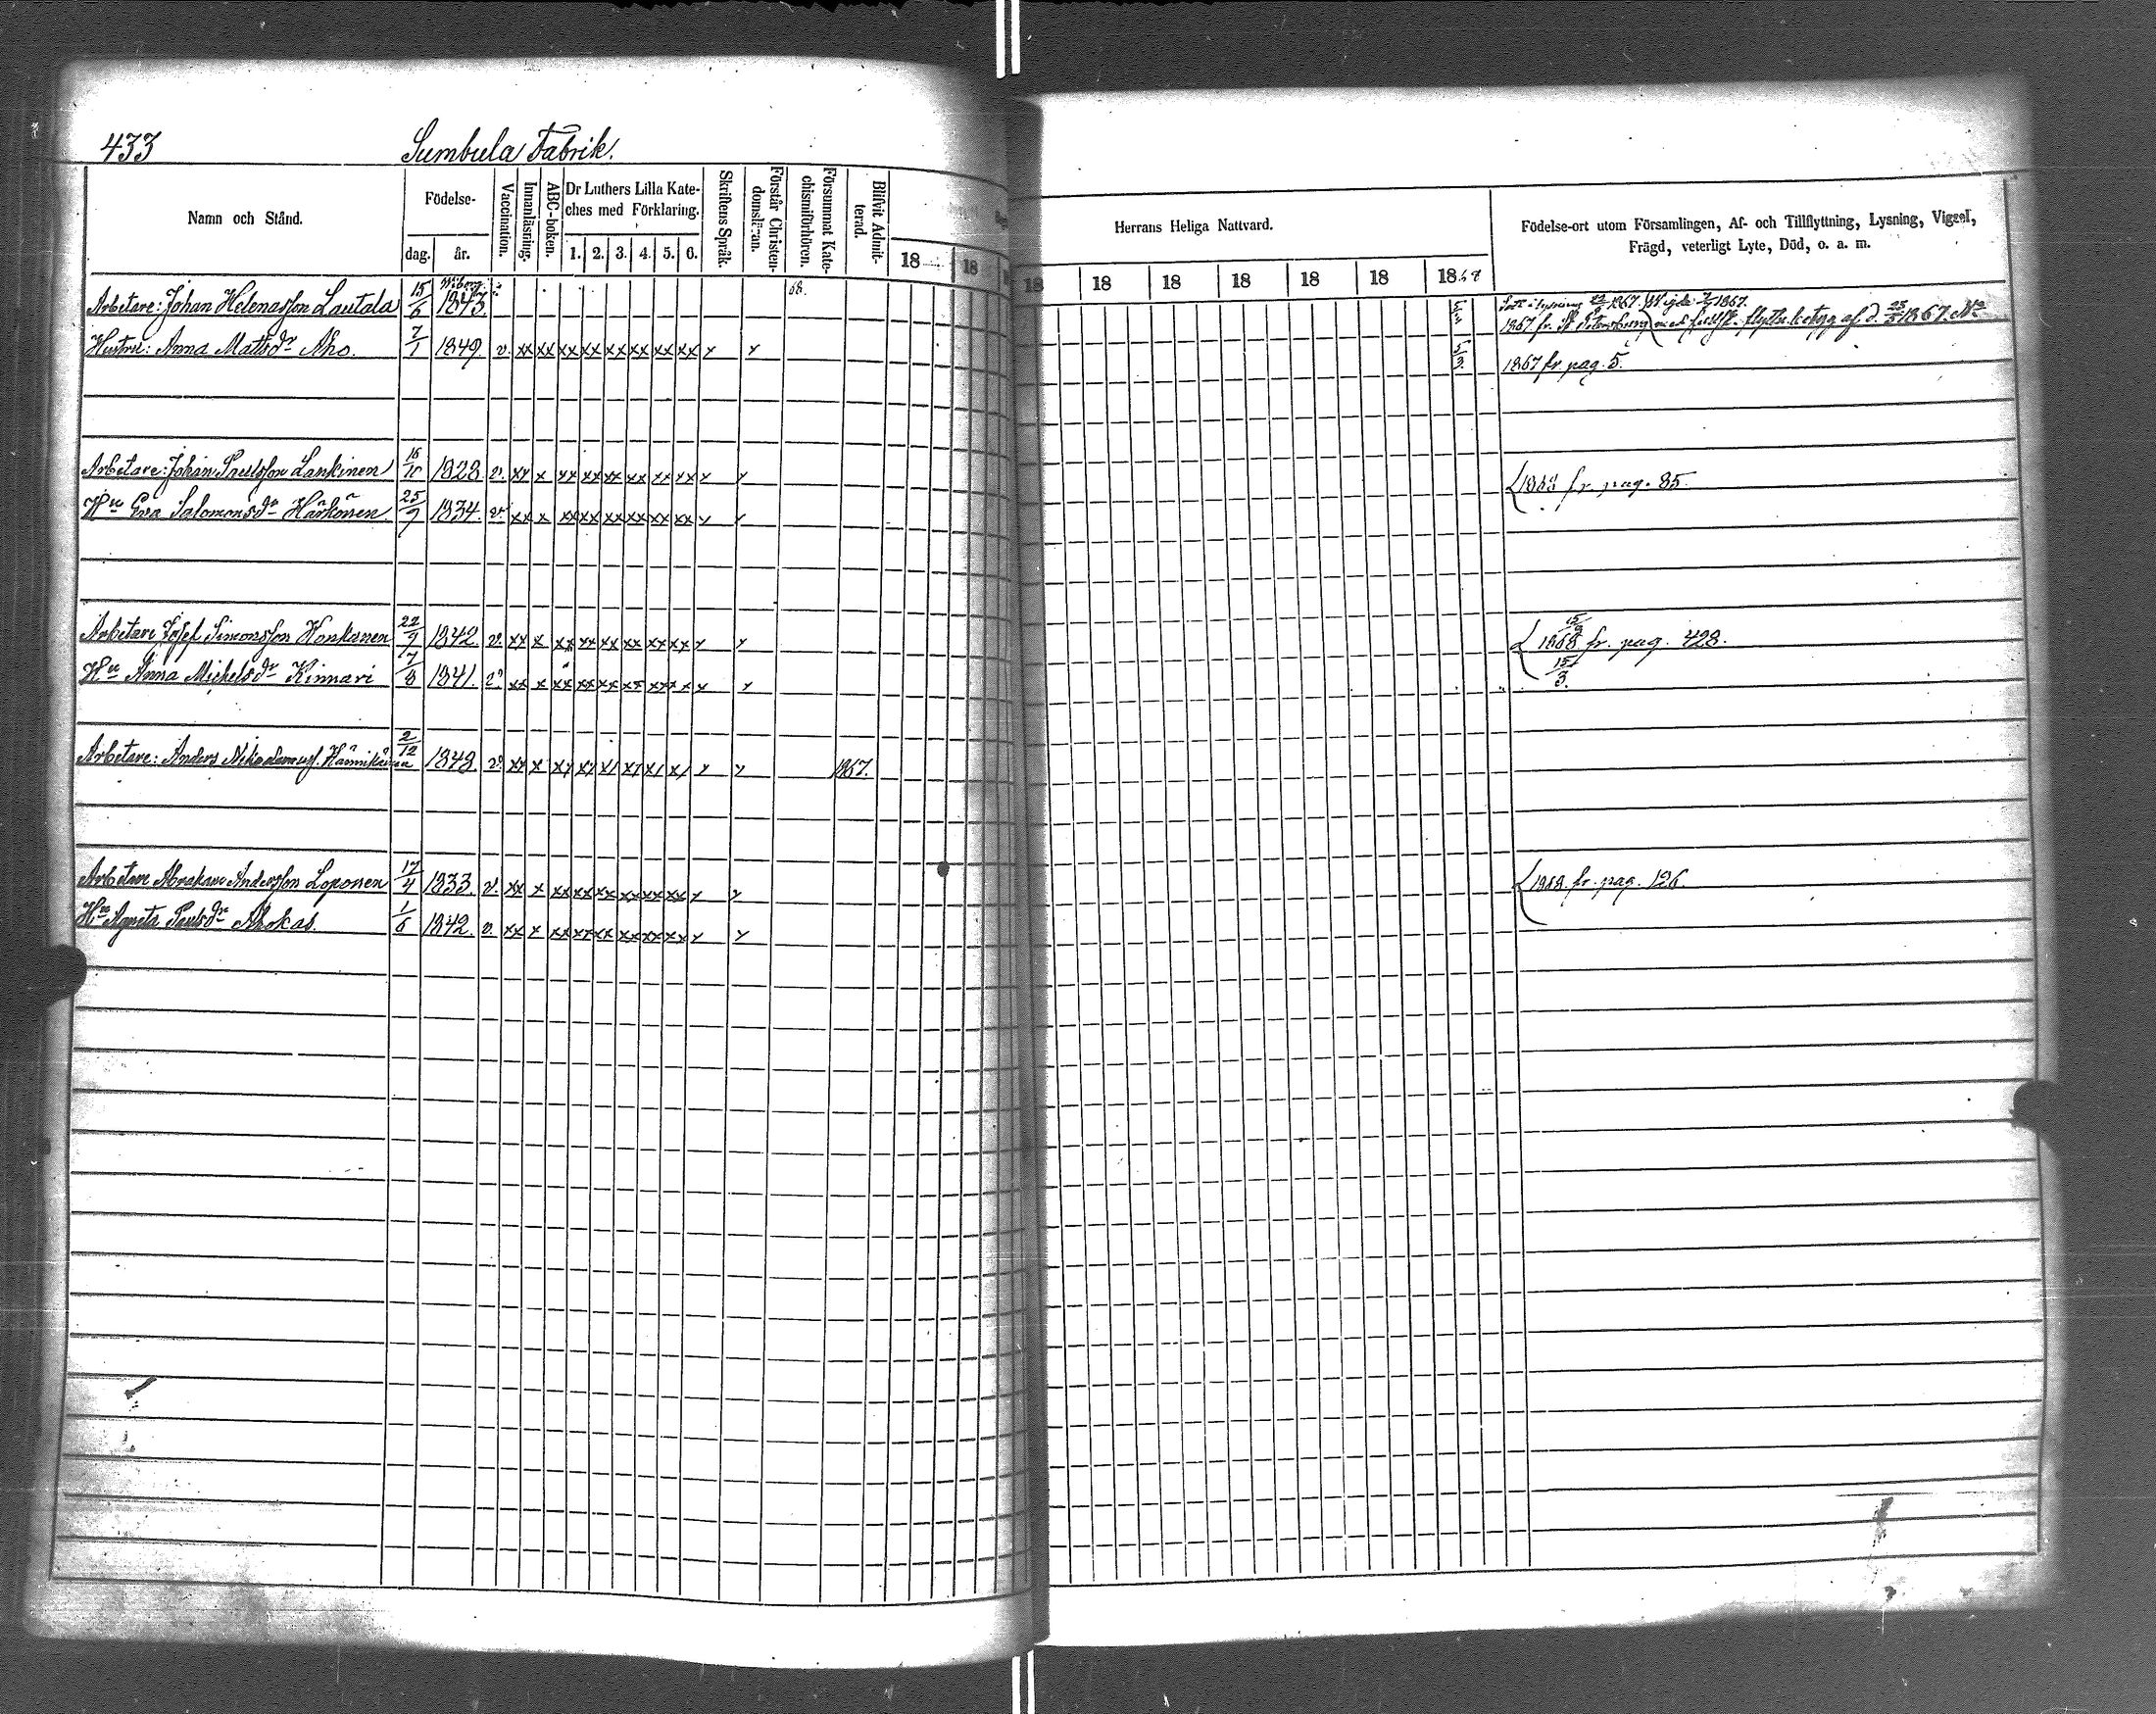 433 Sumbula Fabrik.
Namn och Stånd.
Födelse-
dag. år.
Vaccination.
Innanläsning.
ABC-boken.
Dr Luthers Lilla Kate-
ches med Förklaring.
1. 2. 3. 4. 5. 6.
Skriftens Språk.
Förstår Christen-
domsläran.
Försummat Kate-
chismiförhören.
Blifvit Admit-
terad.
18 18
Herrans Heliga Nattvard.
18 18 18 18 18 18 1868
Födelse-ort utom Församlingen, Af- och Tillflyttning, Lysning, Vigsel,
Frägd, veterligt Lyte, Död, o. a. m.
Wiborg
Arbetare: Johan Helenasson Lautala 15/6 1843. 68. 5/3 1867. 1867.
1867 fr. St Petersburg med flyttn.betyg af d. 25/5 1867. No
Hustru: Anna Mattsdr Aho. 7/1 1849. v. xx xx xx xx xx xx xx xx 5/3 1867 fr. pag. 5.
Arbetare: Johan Paulsson Lankinen 16/10 1828. v. xx x xx xx xx xx xx xx fr. pag. 85.
Hu Eva Salomonsdr Härkönen 25/9 1834. v. xx x xx xx xx xx xx xx
Arbetare Josef Simonsson Honkanen 22/9 1842. v. xx x xx xx xx xx xx xx 1868 fr. pag. 428.
Hu Anna Michelsdr Kinnari 17/8 1841. v. xx x xx xx xx xx xx xx 15/3.
Arbetare: Anders Nikodemusf. Hännikäinen 2/12 1849 v. xx x 1867.
Arbetare Abraham Andersson Loponen 17/4 1833. v. xx x xx xx xx xx xx xx fr. pag. 126.
Hu Agneta Paulsdr Ahokas. 1/6 1842. v. xx x xx xx xx xx xx xx